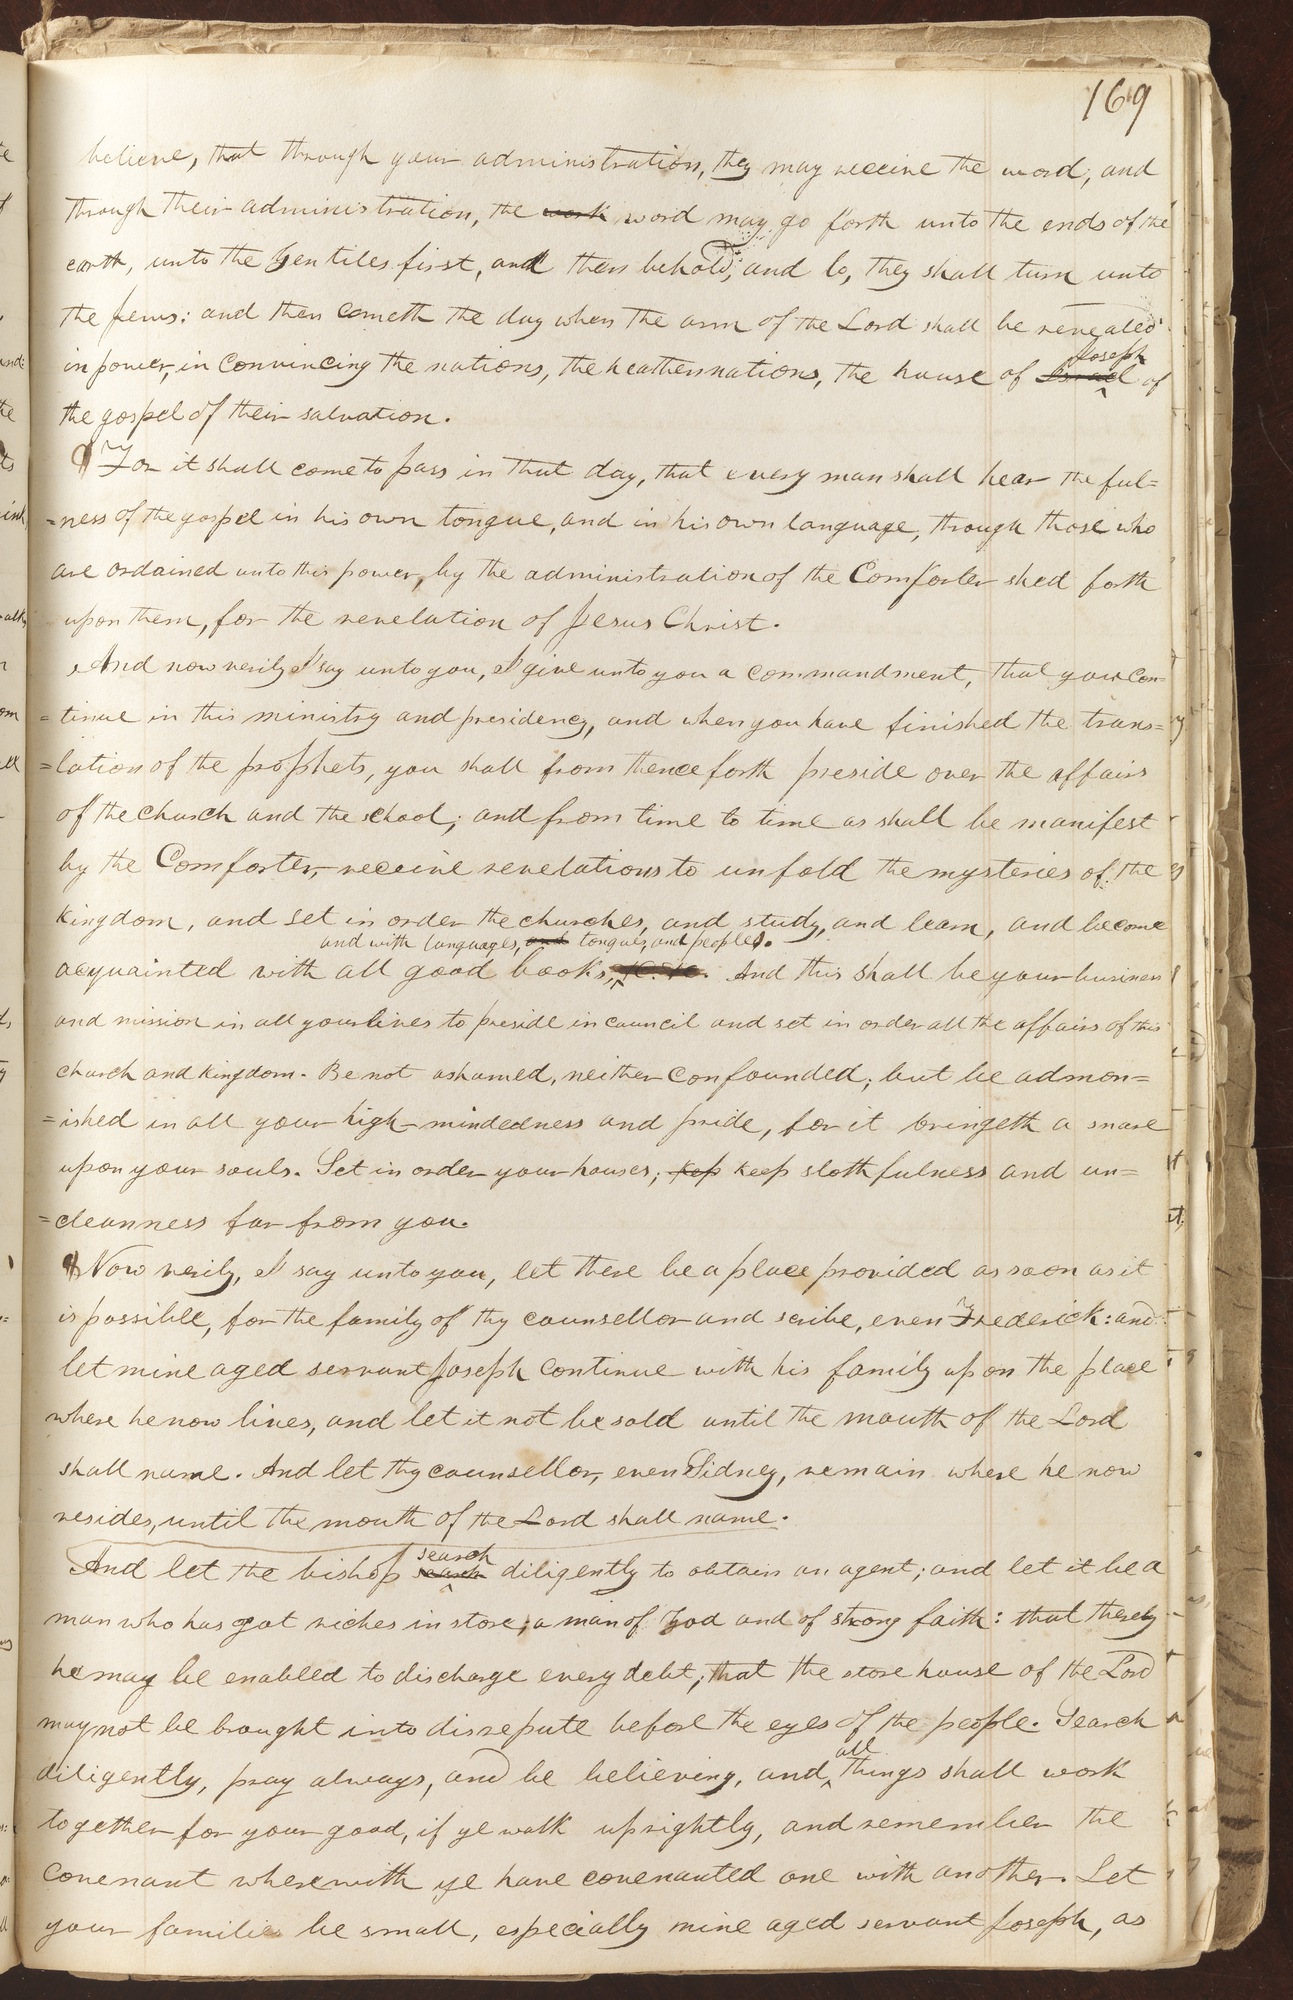 169
believe, that through your administration, they may receive the word, and
through their administration, the work word may go forth unto the ends of the
earth, unto the Gentiles first, and then behold, and lo, they shall turn unto
the Jews: and then cometh the day when the arm of the Lord shall be revealed
in power, in convincing the nations, the heathen nations, the house of Israel Joseph of
the gospel of their salvation.
¶ For it shall come to pass in that day, that every man shall hear the ful=
=ness of the gospel in his own tongue, and in his own language, through those who
are ordained unto this power, by the administration of the Comforter shed forth
upon them, for the revelation of Jesus Christ.
And now verily I say unto you, I give unto you a commandment, that you con=
=tinue in this ministry and presidency, and when you have finished the trans=
=lation of the prophets, you shall from thence forth preside over the affairs
of the church and the school; and from time to time as shall be manifest
by the Comforter, receive revelations to unfold the mysteries of the
kingdom, and set in order the churches, and study, and learn, and become
and with languages, and tongues, and peoples.
acquainted with all good books, &c. &c. And this shall be your business
and mission in all your lives to preside in council and set in order all the affairs of this
church and kingdom. Be not ashamed, neither confounded; but be admon=
=ished in all your high-mindedness and pride, for it bringeth a snare
upon your souls. Set in order your houses; kep keep slothfulness and un=
=cleanness far from you.
¶ Now verily, I say unto you, let there be a place provided as soon as it
is possible, for the family of thy counsellor and scribe, even Frederick: and
let mine aged servant Joseph continue with his family upon the place
where he now lives, and let it not be sold until the mouth of the Lord
shall name. And let thy counsellor, even Sidney, remain where he now
resides, until the mouth of the Lord shall name.
And let the bishop search search diligently to obtain an agent; and let it be a
man who has got riches in store; a man of God and of strong faith: that thereby
he may be enabled to discharge every debt; that the store house of the Lord
may not be brought into disrepute before the eyes of the people. Search
diligently, pray always, and be believing, and all things shall work
together for your good, if ye walk uprightly, and remember the
covenant wherewith ye have covenanted one with another. Let
your families be small, especially mine aged servant Joseph, as